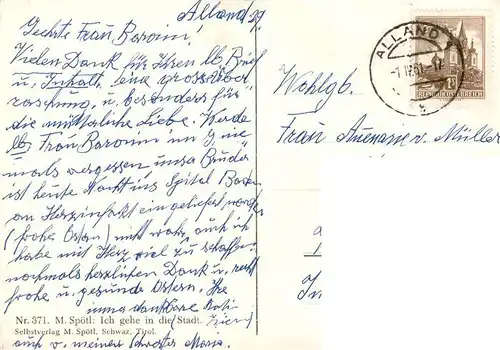 Alland 29
Geehrte Frau Baronin!
Vielen Dank für Ihren lb. Brief
u. Inhalt, eine grosse Über
raschung, u. besonders für
die mütterliche Liebe. Werde
lb. Frau Baronin nie
mals vergessen unser Bruder
ist heute Nacht ins Spital Baden
an Herzinfarkt eingeliefert worden
(frohe Ostern) nicht wahr, auch ich
habe mit Herz viel zu schaffen
nochmals herzlichen Dank u. recht
frohe u. gesunde Ostern. Ihre
immer dankbare
Nr. 371. M. Spötl: Ich gehe in die Stadt.
Selbstverlag M. Spötl, Schwaz, Tirol.
auch v. meiner Schwester Maria.
ALLAND
REPUBLIK ÖSTERREICH
Wohlgb.
Frau v. Müller